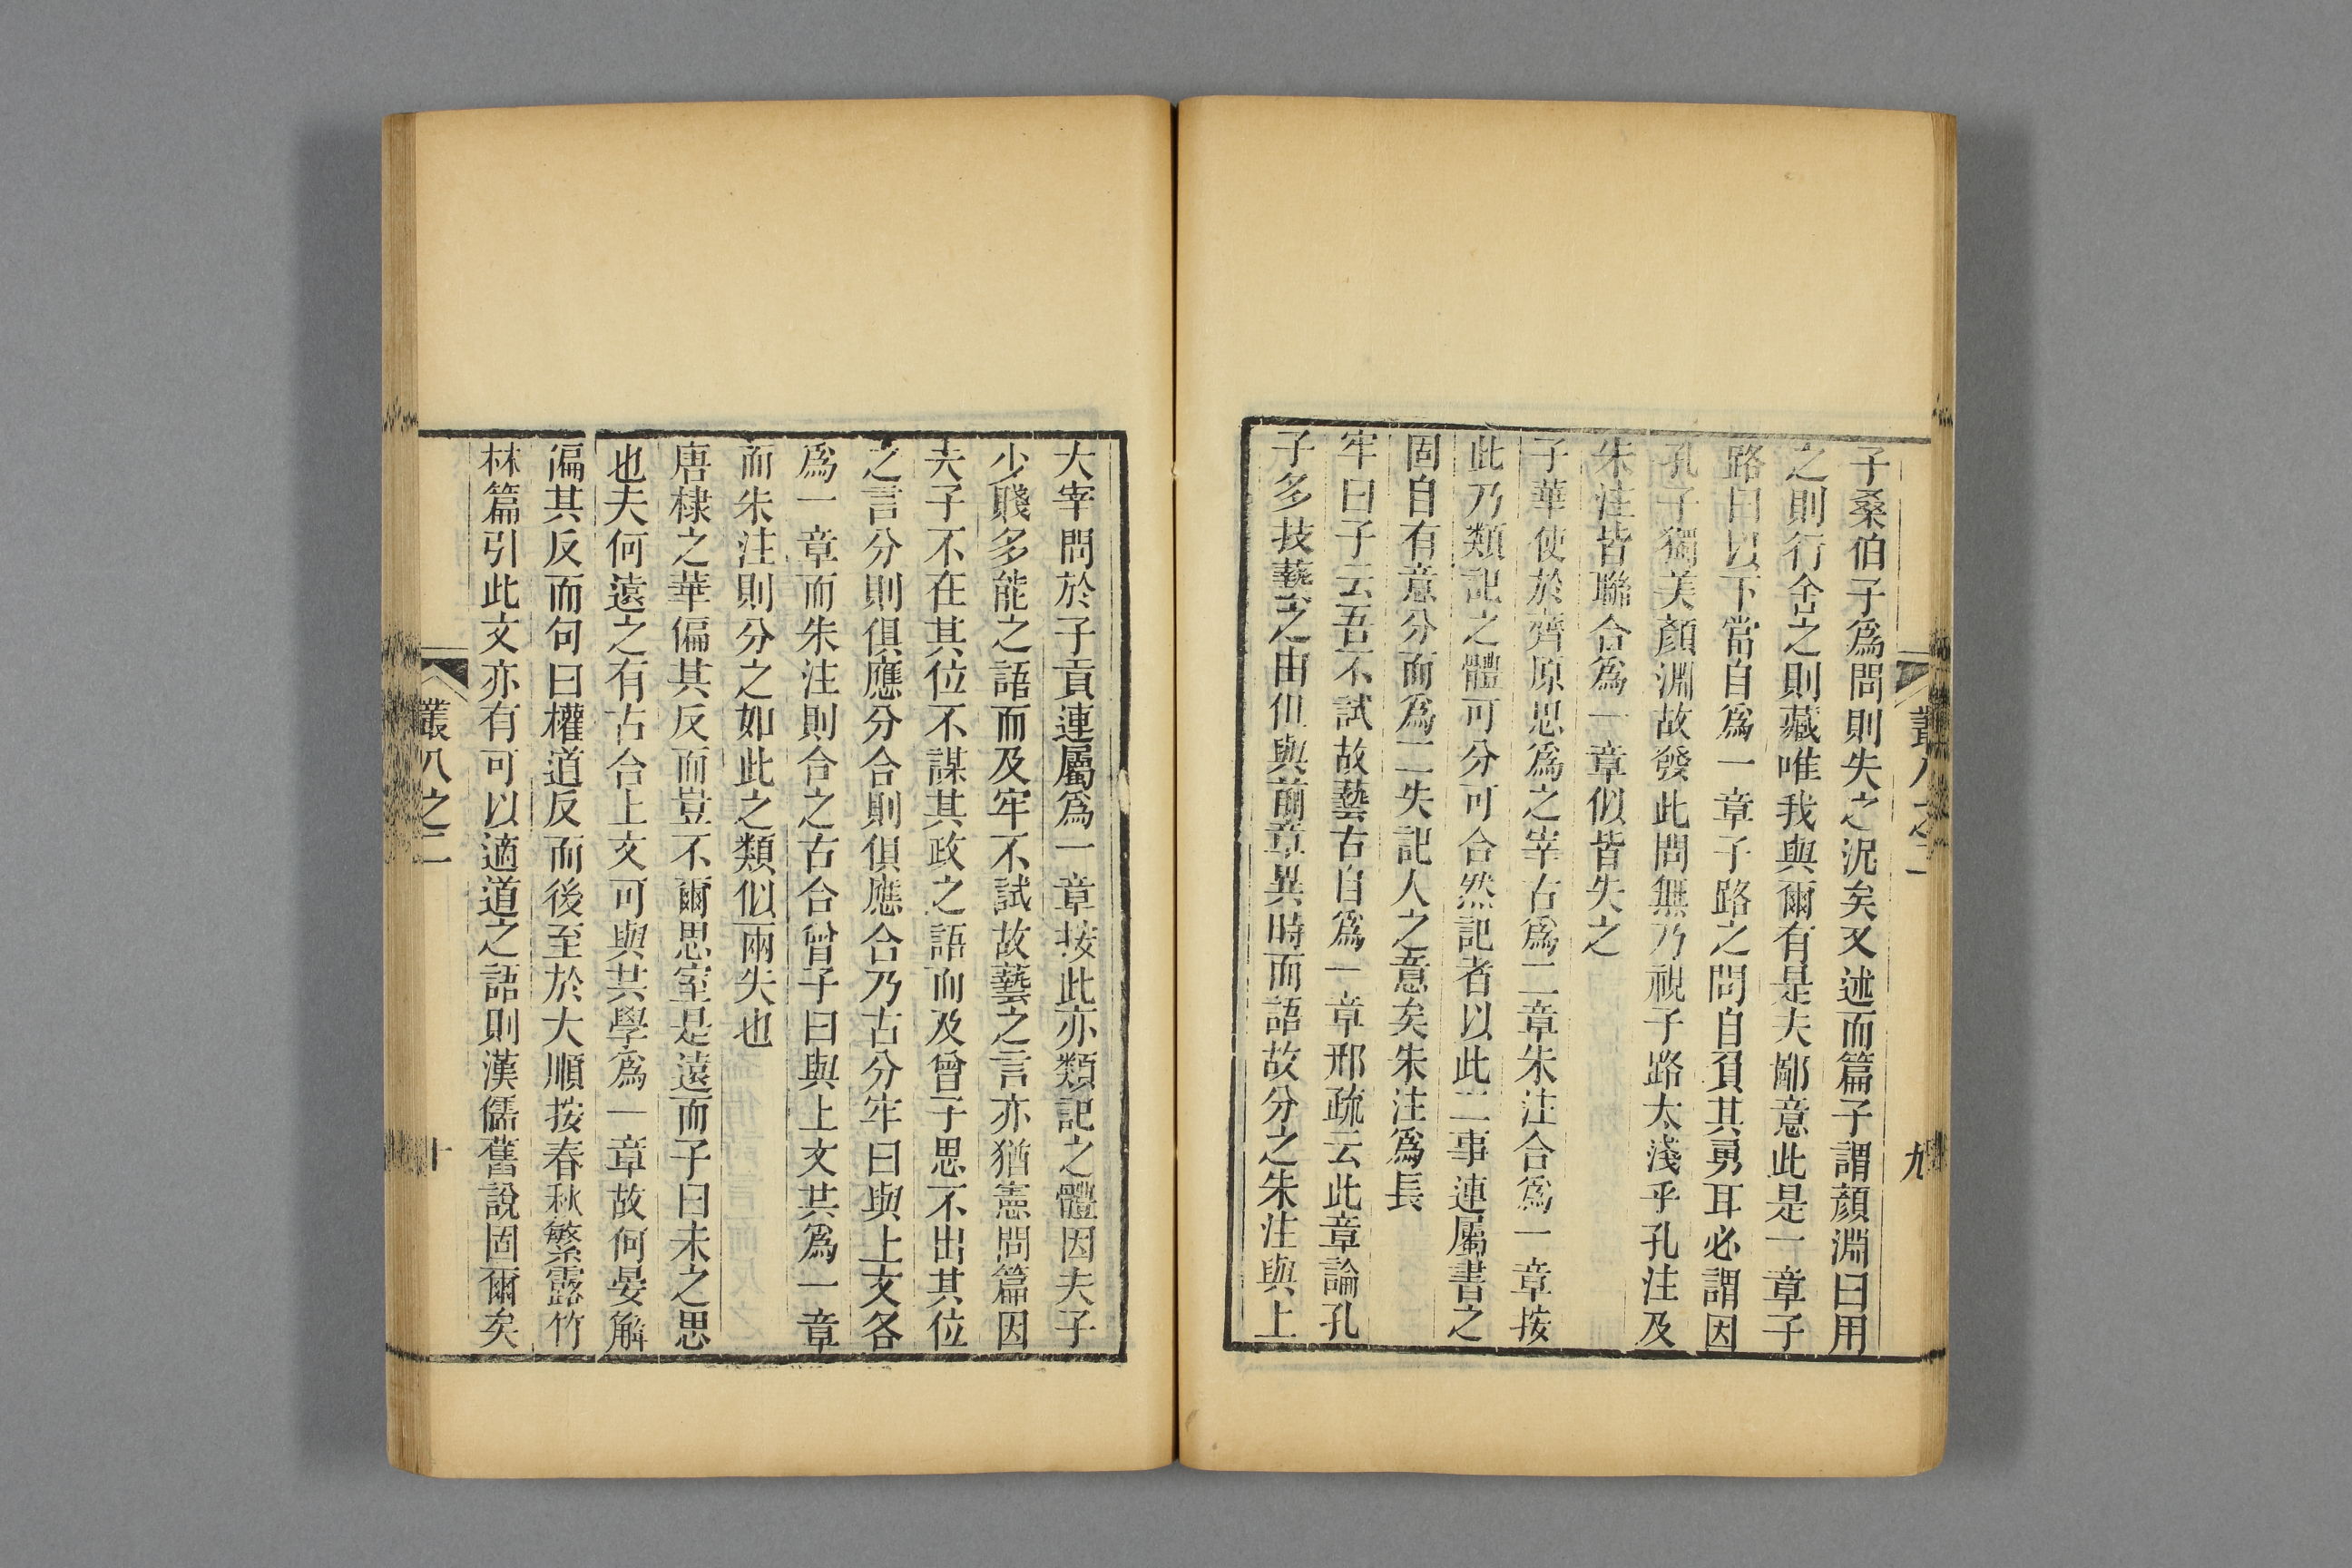 叢八之二
九
子桑伯子爲問則失之泥矣又述而篇子謂顏淵曰用
之則行舍之則藏唯我與爾有是夫鄙意此是一章子
路曰以下當自爲一章子路之問自負其勇耳必謂因
孔子獨美顏淵故發此問無乃視子路太淺乎孔注及
朱注皆聯合爲一章似皆失之
子華使於齊原思爲之宰古爲二章朱注合爲一章按
此乃類記之體可分可合然記者以此二事連屬書之
固自有意分而爲二失記人之意矣朱注爲長
牢曰子云吾不試故藝古自爲一章邢疏云此章論孔
子多技藝之由但與前章異時而語故分之朱注與上
大宰問於子貢連屬爲一章按此亦類記之體因夫子
少賤多能之語而及牢不試故藝之言亦猶憲問篇因
夫子不在其位不謀其政之語而及曾子思不出其位
之言分則俱應分合則俱應合乃古分牢曰與上文各
爲一章而朱注則合之古合曾子曰與上文共爲一章
而朱注則分之如此之類似兩失也
唐棣之華偏其反而豈不爾思室是遠而子曰未之思
也夫何遠之有古合上文可與共學爲一章故何晏解
偏其反而句曰權道反而後至於大順按春秋繁露竹
林篇引此文亦有可以適道之語則漢儒舊說固爾矣
叢八之二
十